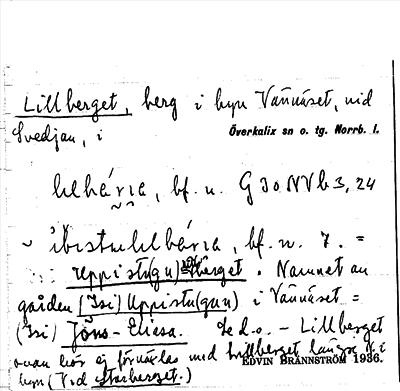 Lillberget, berg i byn Vännäset, vid
Svedjan, i Överkalix sn o. tg. Norrb. l.
bf. n. G 30 NV b 3, 24
bf. n. 7. =
Uppistu(gu) berget. Namnet av
gården (Isi) Uppistu(gun) i Vännäset =
(Isi) Jöns-Eliesa. Se d.o. - Lillberget
ovan bör ej förväxlas med Lillberget längre ut i
byn (Vid Storberget.)
EDVIN BRÄNNSTRÖM 1936.